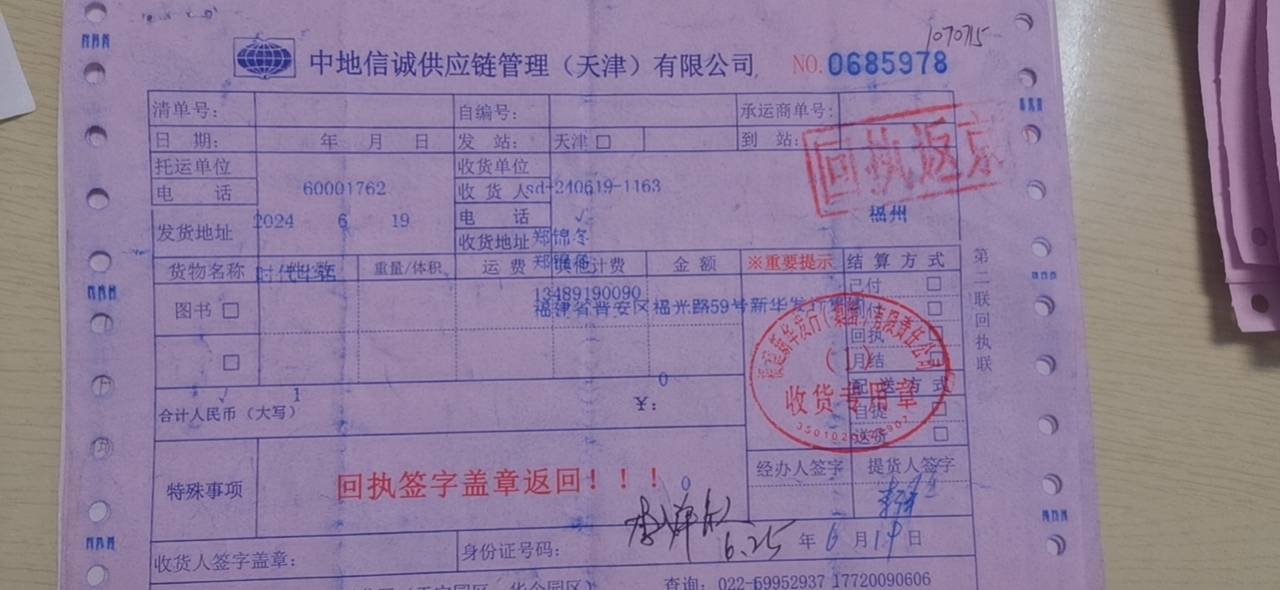 1070715
中地信诚供应链管理（天津）有限公司 NO.0685978
清单号： 自编号： 承运商单号：
日 期： 年 月 日 发 站： 天津□ 到 站：
回执返京
托运单位 收货单位
电 话 60001762 收 货 人 sd-240619-1163
福州
电 话 √
发货地址 2024 6 19
收货地址 郑锦冬
郑锦冬
货物名称 件 数 重量/体积 运 费 其他计费 金 额 ※重要提示 结 算 方 式
时代华语
13489190090
已付 □
图书 □ 福建省晋安区福光路59号新华发行集团
回执 □
□ 月结 □
(1)
收货专用章
配 送 方 式
自提 □
送货 □
1 0
合计人民币（大写） ￥：
经办人签字 提货人签字
特殊事项 回执签字盖章返回！！！ 0
6.25 年 6 月 19 日
收货人签字盖章： 身份证号码：
查询：022-59952937 17720090606
第二联回执联